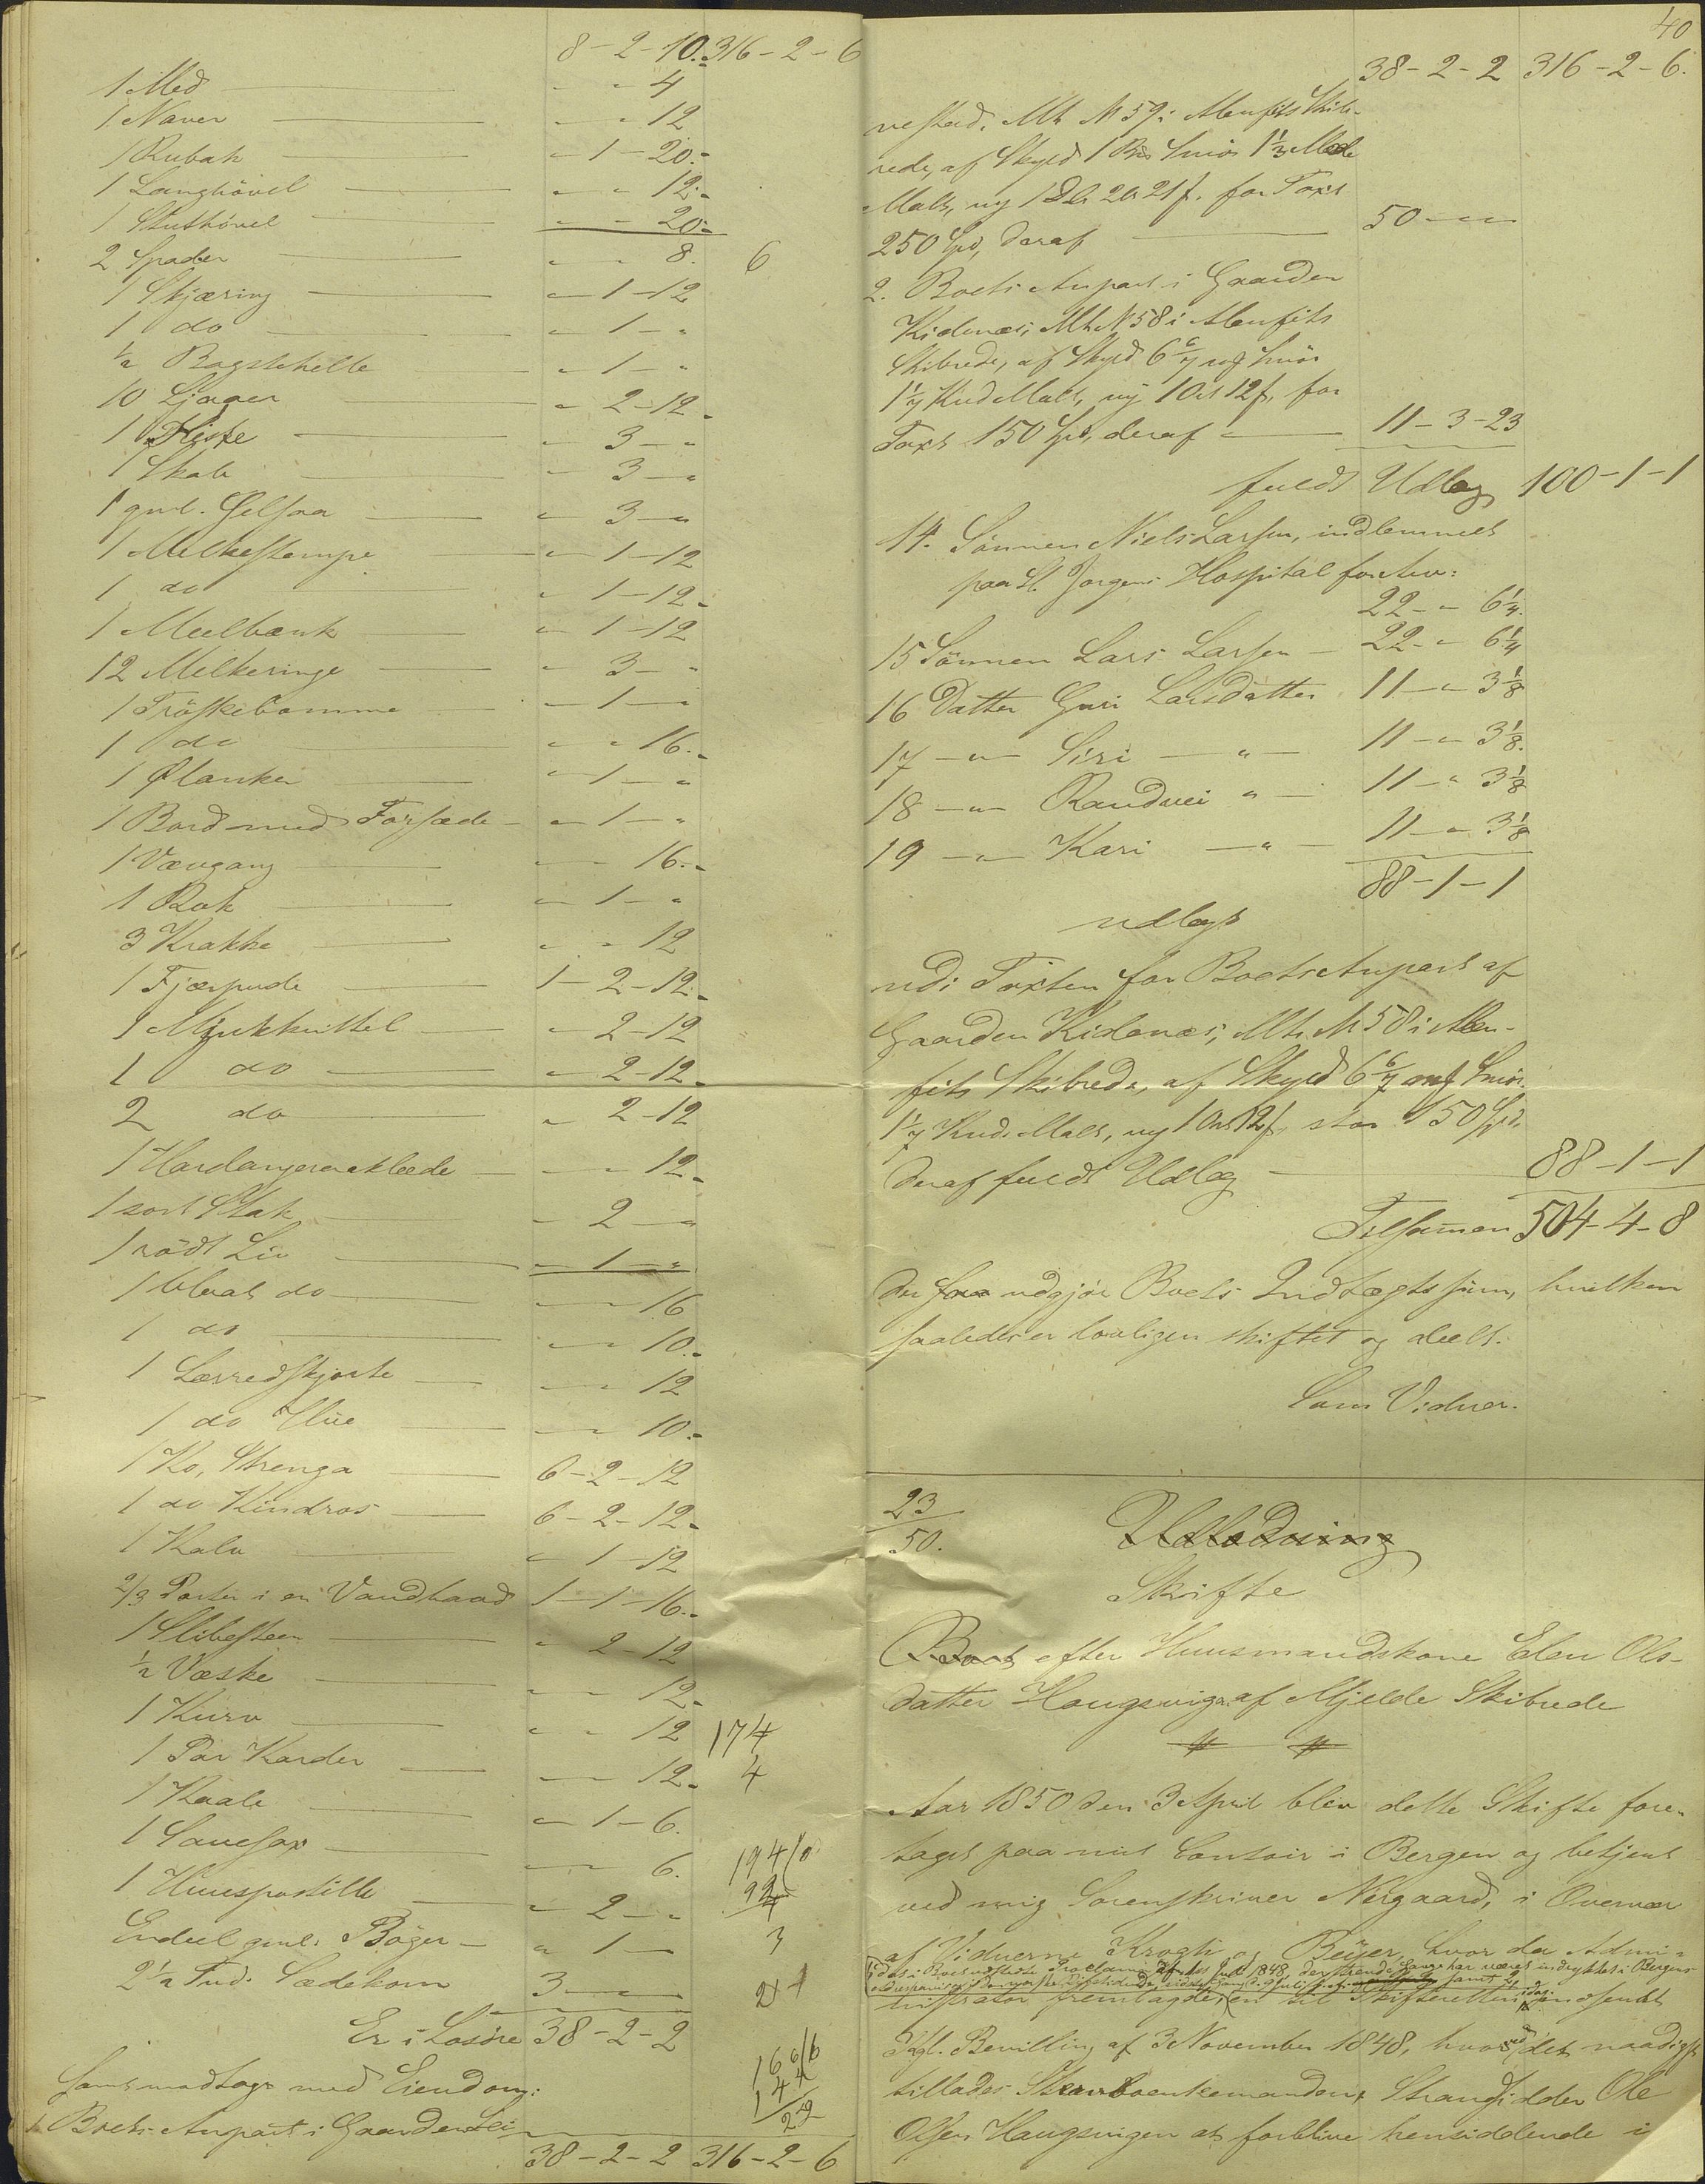 8-2-10. 316-2-6
1 Med - - 4
1 Naver - - 12
1 Rubak - 1-20.
1 Langhövel - - 12.
1 Stuthövel - - 20.
2 Spader - - 8. 6
1 Skjæring - 1-12
1 do - 1 - -
½ Bagstehelle - 1 - -
10 Ljaaer - 2-12.
1 Kiste - 3 - -
1 Skab - 3 - -
1 gml. - 3 - -
1 Melkestampe - 1-12
1 do - 1-12.
1 Meelbænk - 1-12
12 Melkeringe - 3 - -
1 Tröskebomme - 1 - -
1 do - - 16.
1 Planker - 1 - -
1 Bord med Forsæde - 1 - -
1 Vævgang - - 16.
1 Rok - 1 - -
3 Krakke - - 12
1 Fjærpude 1-2-12.
1 - 2-12
1 do - 2-12.
2 do - 2-12
1 Hardangeraaklæde - - 12.
1 sort Stak - 2 - -
1 rödt Liv - 1 - -
1 blaat do - - 16
1 do - - 10.
1 Lærredskjorte - - 12
1 do Hue - - 10.
1 Ko, Strenga 6-2-12
1 do Kindros 6-2-12.
1 Kalv - 1-12
2/3 Parter i en Vandbaad 1-1-16.
1 Slibesteen - 2-12
½ Væske - - 12.
1 Kurv - - 12 174
1 Par Karder - - 12. 4
1 Kaabe - 1-6.
1 Sauesax - - 6. 194
1 Huuspostille - 2 - -
Endeel gml. Böger - 1 - 3
2½ Tnd. Sædekorn 3 - -
Er i Lösöre 38-2-2
Samt modtage med Eiendom:
1. Boets Anpart i Gaarden Lei-
38-2-2 316-2-6
40
38-2-2 316-2-6.
vestad, Mt. N 59 i Alenfits Skib-
rede, af Skyld 1 Bs Smör 1⅓ Mæle
Malt, ny 1 Dlr 2 21 f. for Taxt
250 Spd, deraf 50 - -
2. Boets Anpart i Gaarden
Kidenæs, Mt. N 58 i Alenfits
Skibrede, af Skyld 6 6/7 mf Smör
1 1/7 Knd Malt, ny 1 Ort 12 f, for
Taxt 150 Spd, deraf 11-3-23
fuldt Udlæg 100-1-1
14. Sönnen Niels Larsen, indlemmet
paa St. Jørgens Hospital for Arv:
22 - - 6¼.
15 Sönnen Lars Larsen - 22 - - 6¼
16 Datter Guri Larsdatter 11 - - 3⅛
17 -"- Siri -"- 11 - - 3⅛.
18 -"- Randvei " - 11 - - 3⅛
19 -"- Kari -"- 11 - - 3⅛
88-1-1
udlagt
udi Taxten for Boets Anpart af
Gaarden Kidenæs, Mt. N 58 i Alen-
fits Skibrede, af Skyld 6 6/7 mf Smör
1 1/7 Knd. Malt, ny 1 Ort 12 f, stor 150 Spd.
deraf fuldt Udlæg - 88-1-1
Tilsammen 504-4-8
der udgjör Boets Indtægtssum, hvilken
saaledes er lovligen skiftet og deelt.
Som Vidner.
23
50.
Udlodning
Skifte
Boet efter Huusmandskone Eden Ols-
datter Haugsvigen af Mjelde Skibrede
Aar 1850 den 3 April blev dette Skifte fore-
taget paa mit Contoir i Bergen og betjent
ved mig Sorenskriver Nergaard, i Overvær
af Vidnerne Krogh og Beyer, hvor da Admi-
nistrator fremlagde, en til Skifteretten indsendt
Kgl. Bevilling af 3 November 1848, hvorved det naadigst
tillades Enkemanden, Strandsidder Ole
Olsen Haugsvigen at forblive hensiddende i